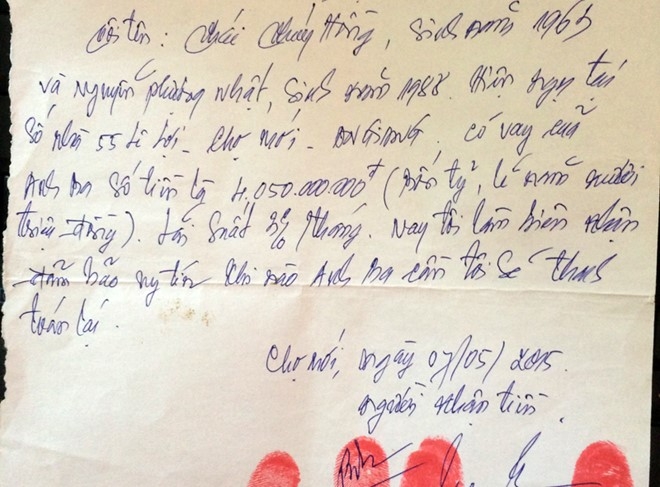 Tôi tên: Thái Thúy Hồng, Sinh năm 1965
và Nguyễn Phương Nhật, Sinh năm 1988. Hiện ngụ tại
Số nhà 55 Lê Lợi - Chợ Mới - An Giang. Có vay của
Anh Ba Số tiền là 4.050.000.000đ (Bốn tỷ, lẻ năm mươi
triệu đồng). Lãi Suất 3% /tháng. Nay tôi làm biên nhận
đảm bảo uy tín khi nào Anh Ba cần tôi Sẽ thanh
toán lại.
Chợ Mới, ngày 07/05/2015.
Người nhận tiền